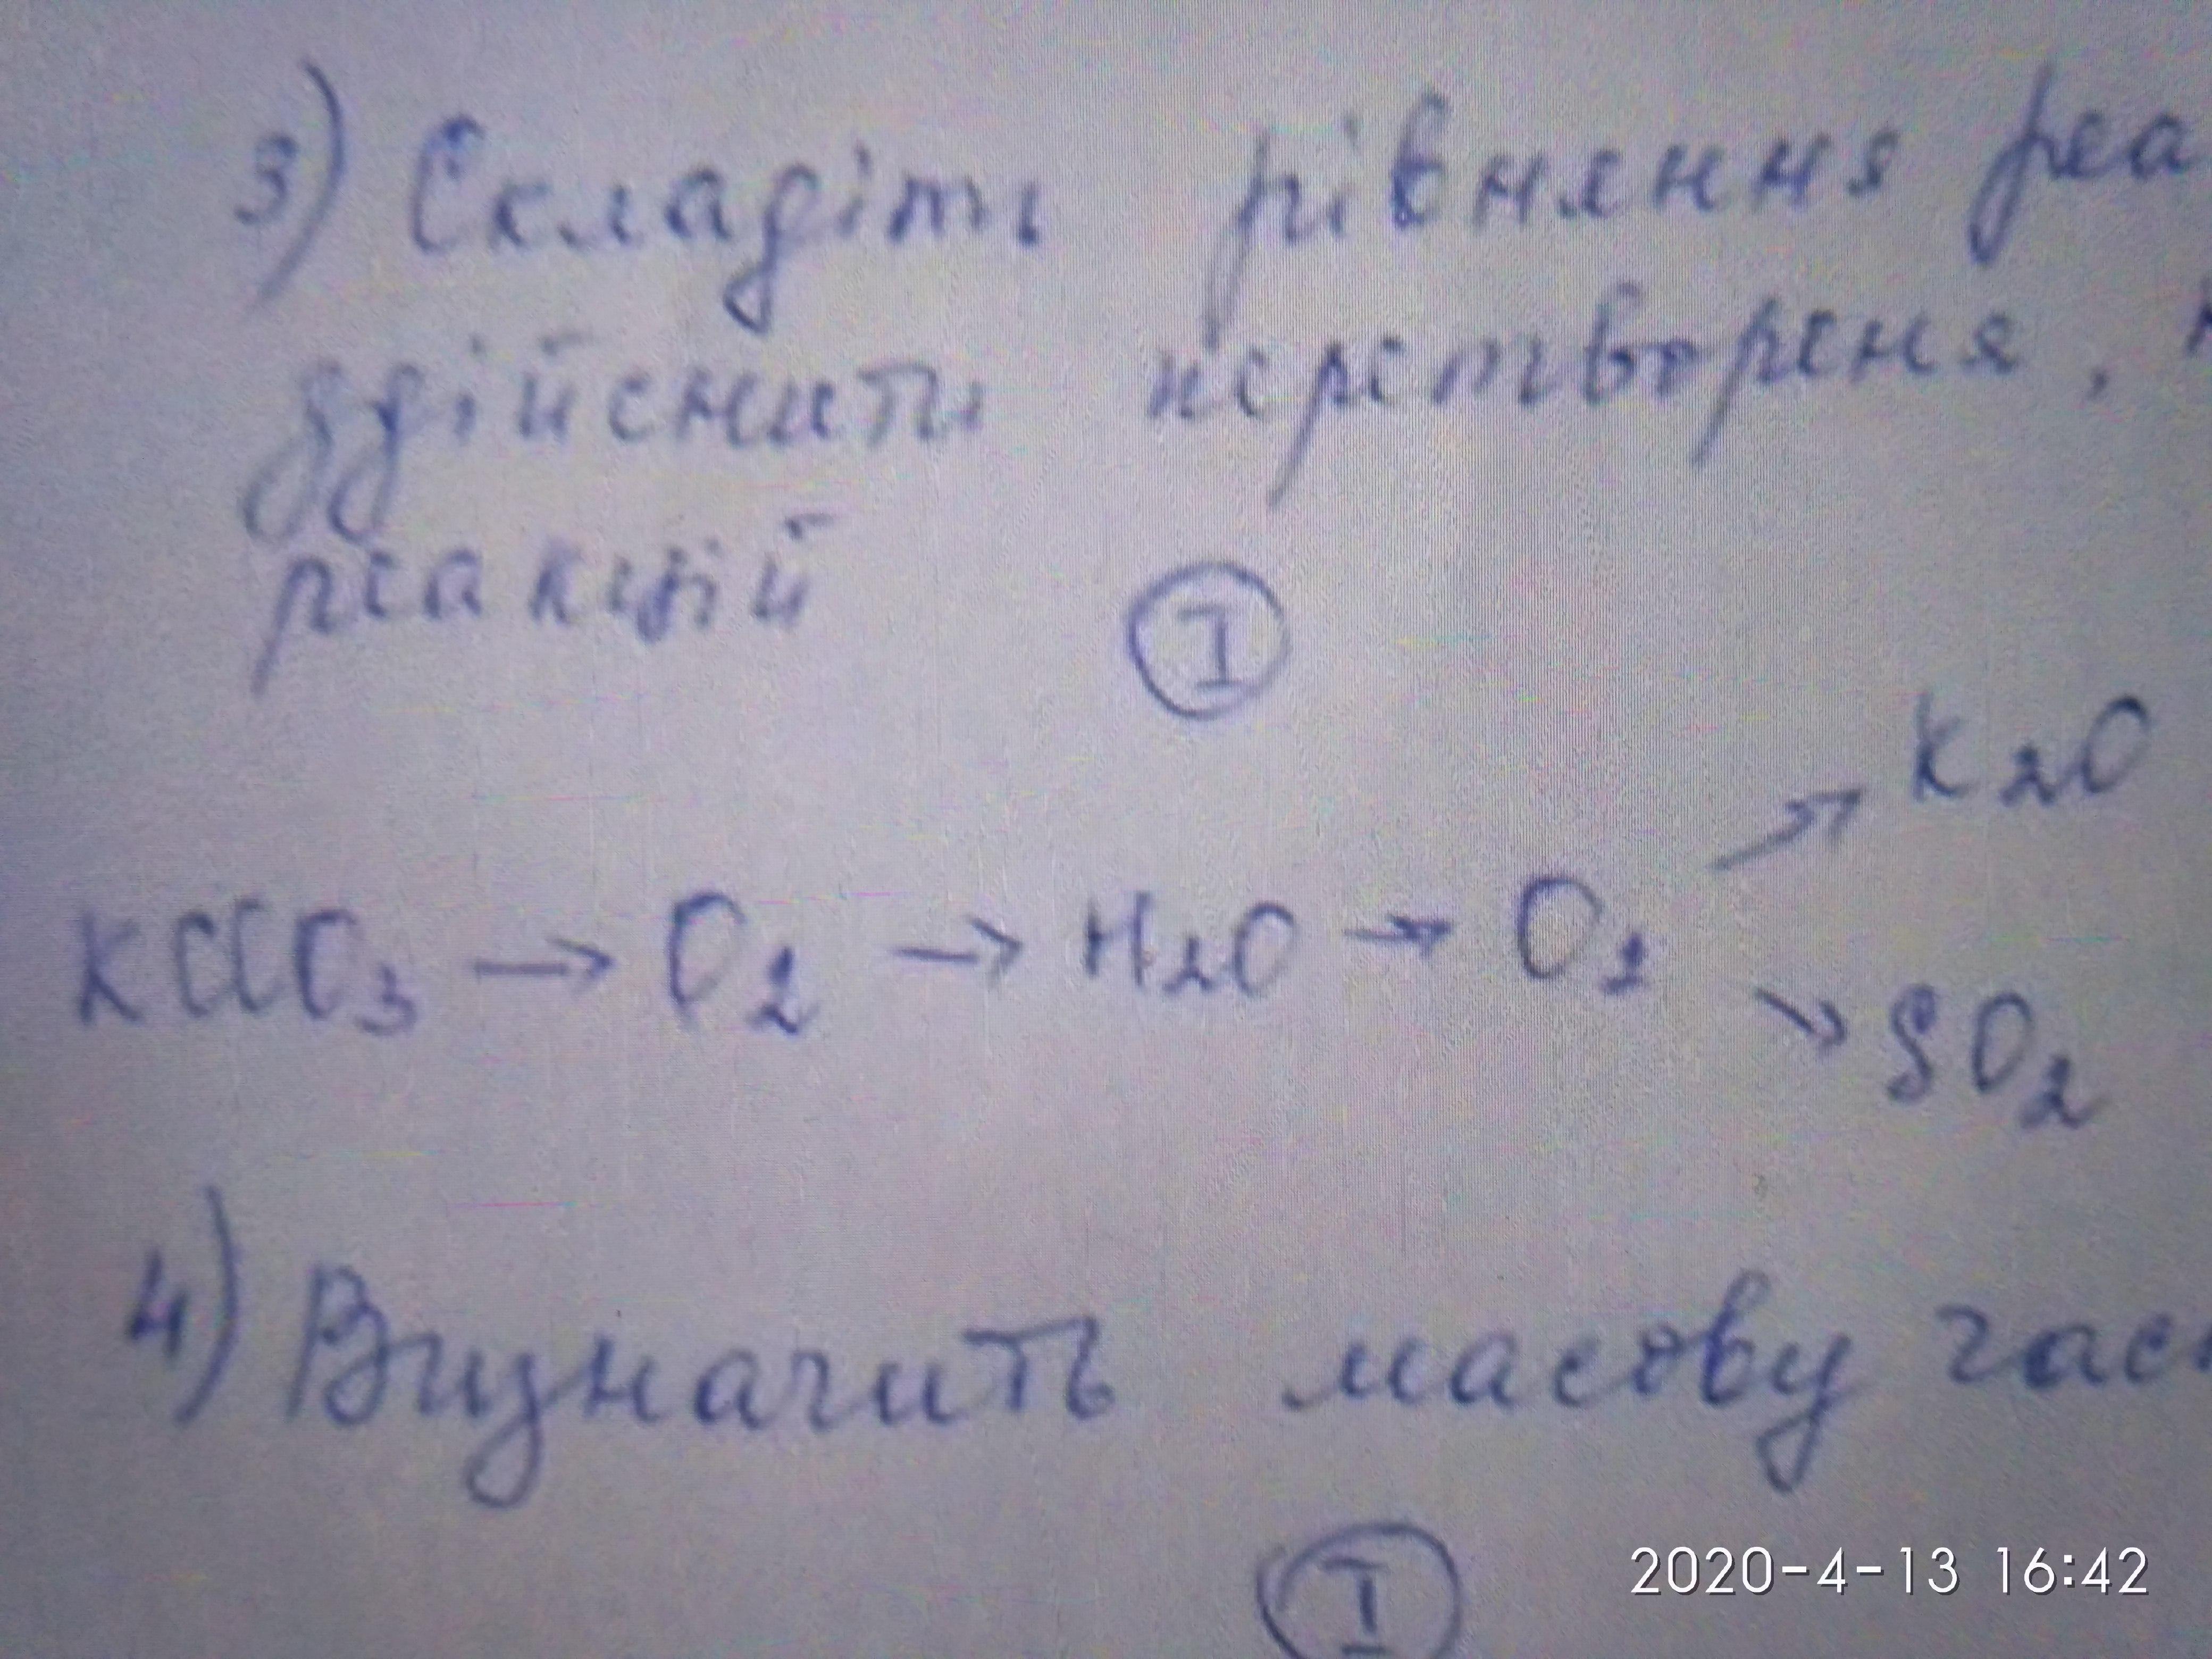 3) Складіть рівняння реа
здійснить перетвореня,
реакцій
I
K2O
KClO3 → O2 → H2O → O2
SO2
4) Визначить масову час
I
2020-4-13 16:42